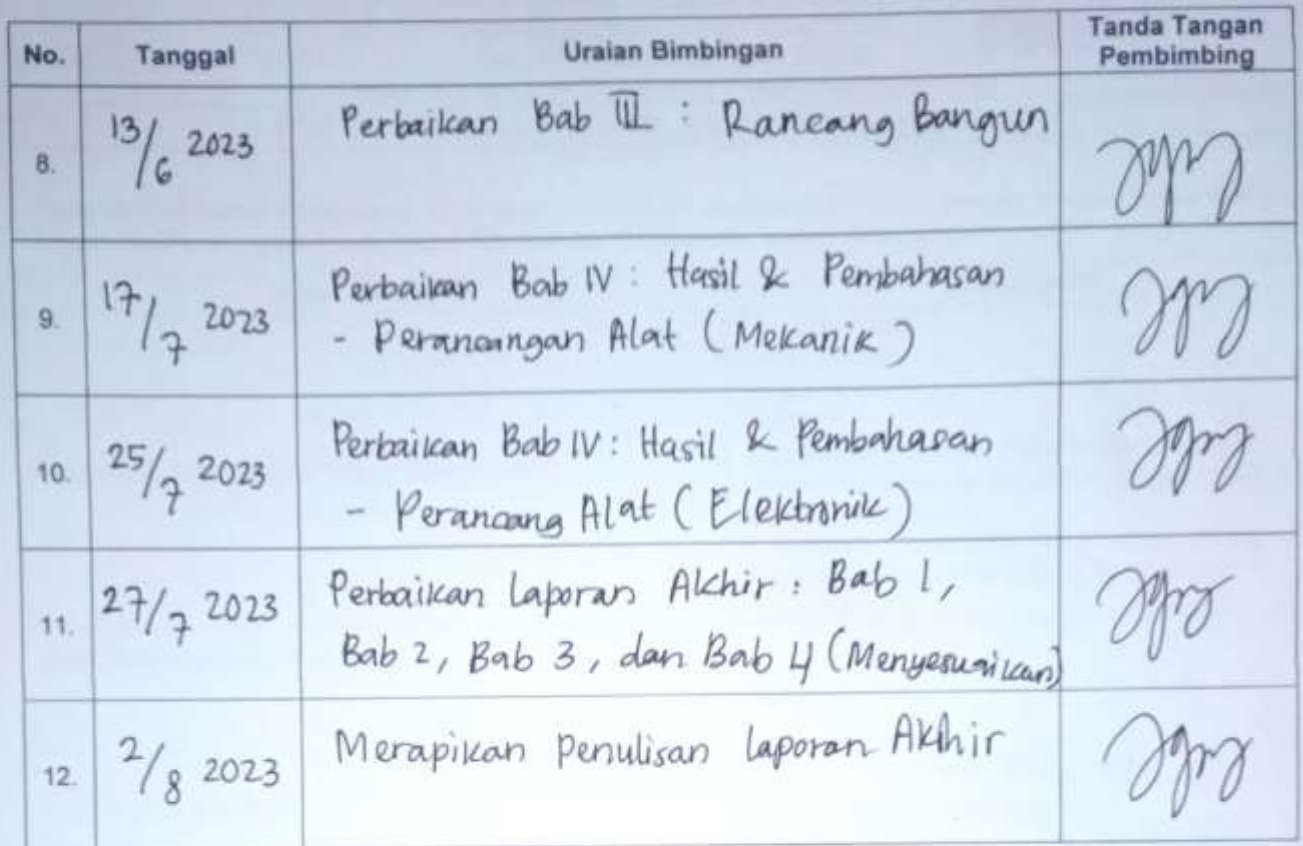 No. Tanggal Uraian Bimbingan Tanda Tangan
Pembimbing
8. 13/6 2023 Perbaikan Bab III : Rancang Bangun
9. 17/7 2023 Perbaikan Bab IV : Hasil & Pembahasan
- Perancangan Alat ( Mekanik )
10. 25/7 2023 Perbaikan Bab IV : Hasil & Pembahasan
- Perancang Alat ( Elektronik )
11. 27/7 2023 Perbaikan Laporan Akhir : Bab 1,
Bab 2, Bab 3, dan Bab 4 (Menyesuaikan)
12. 2/8 2023 Merapikan Penulisan Laporan Akhir